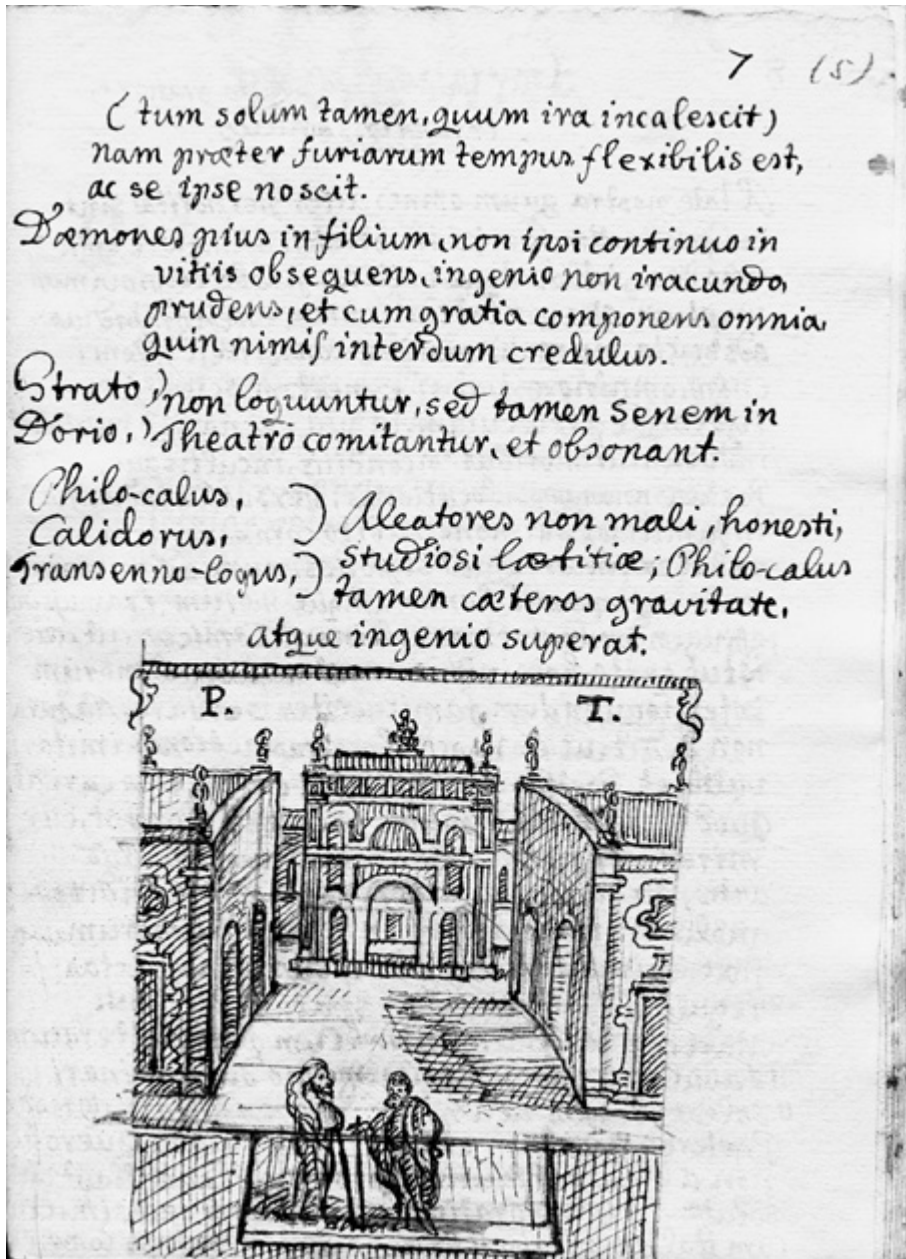 7 (5)
(tum solum tamen, quum ira incalescit)
nam præter furiarum tempus flexibilis est,
ac se ipse noscit.
Dæmones pius in filium, non ipsi continuo in
vitiis obsequens, ingenio non iracundo,
prudens, et cum gratia componens omnia,
quin nimis interdum credulus.
Strato,) non loquuntur, sed tamen Senem in
Dorio,) Theatro comitantur, et obsonant.
Philo-calus,
Calidorus, ) Aleatores non mali, honesti,
Transenno-logus, ) studiosi lætitiæ; Philo-calus
tamen cæteros gravitate,
atque ingenio superat.
P. T.